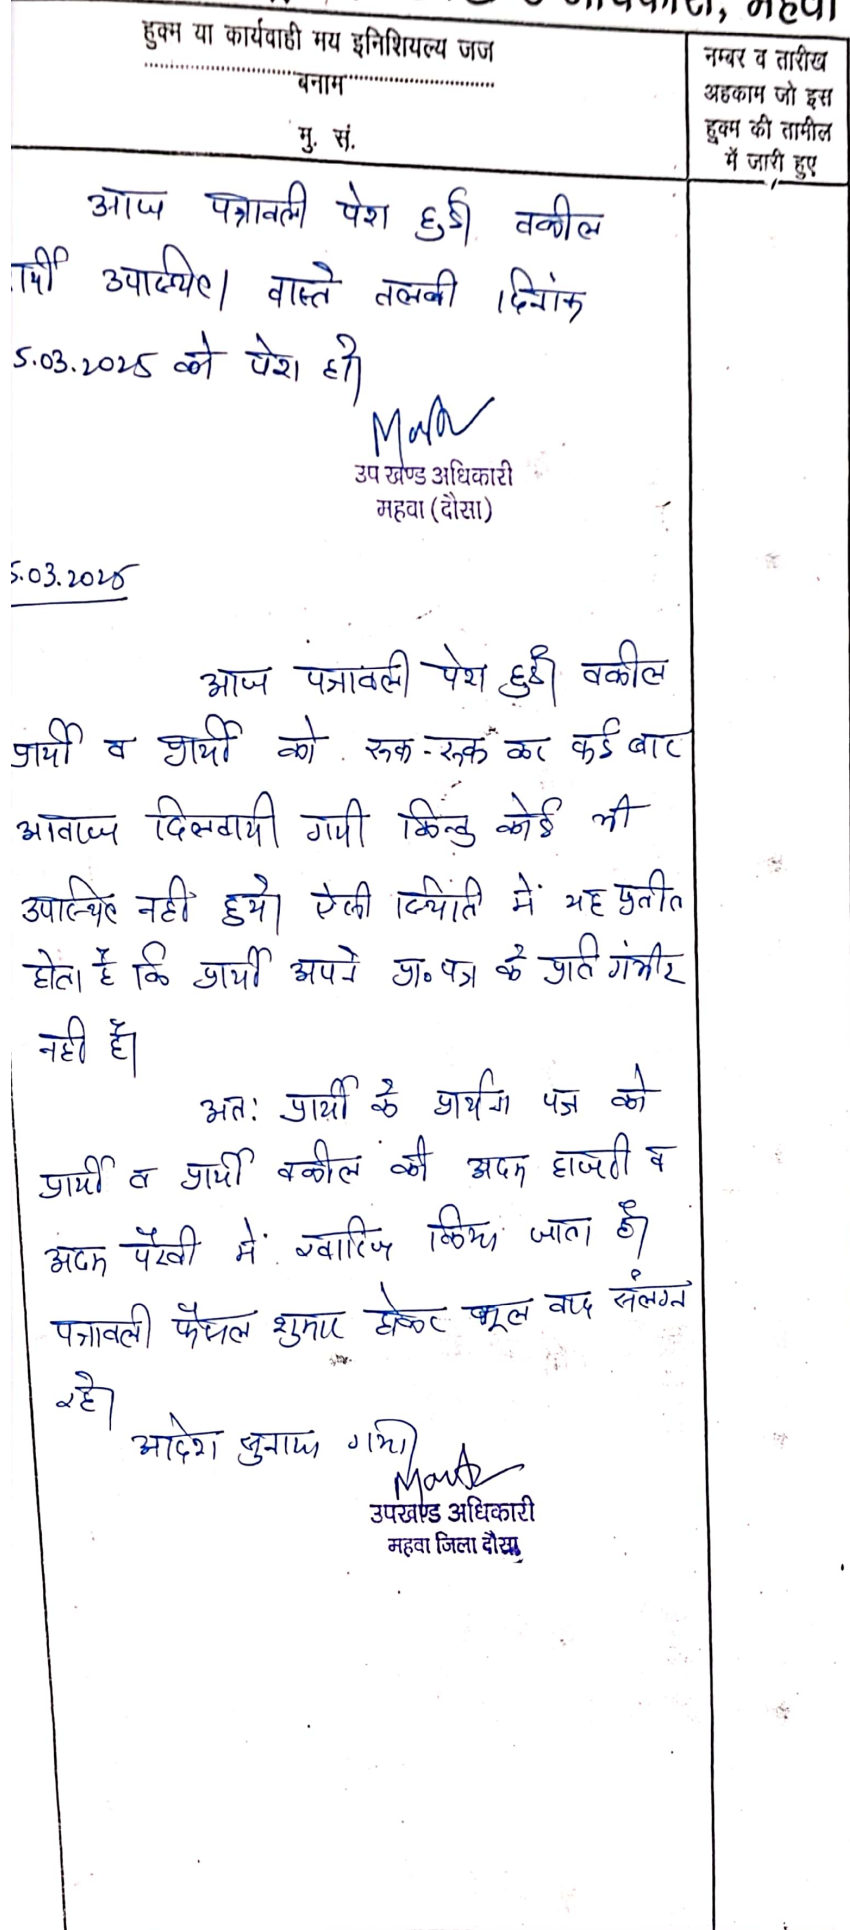 महवा
हुक्म या कार्यवाही मय इनिशियल्य जज
बनाम
मु. सं.
नम्बर व तारीख
अहकाम जो इस
हुक्म की तामील
में जारी हुए
आज पत्रावली पेश हुई। वकील
उपस्थित। वास्ते तलबी दिनांक
5.03.2025 को पेश हो।
उप खण्ड अधिकारी
महवा (दौसा)
5.03.2025
आज पत्रावली पेश हुई। वकील
प्रार्थी व प्रार्थी को रूक-रूक कर कई बार
आवाज दिलवायी गयी किन्तु कोई भी
उपस्थित नहीं हुये। ऐसी स्थिति में यह प्रतीत
होता है कि प्रार्थी अपने प्रा० पत्र के प्रति गंभीर
नही है।
अतः प्रार्थी के प्रार्थना पत्र को
प्रार्थी व प्रार्थी वकील की अदम हाजरी व
अदम पैरवी में खारिज किया जाता है।
पत्रावली फैसल शुमार होकर मूल वाद संलग्न
रहे।
आदेश सुनाया गया।
उपखण्ड अधिकारी
महवा जिला दौसा